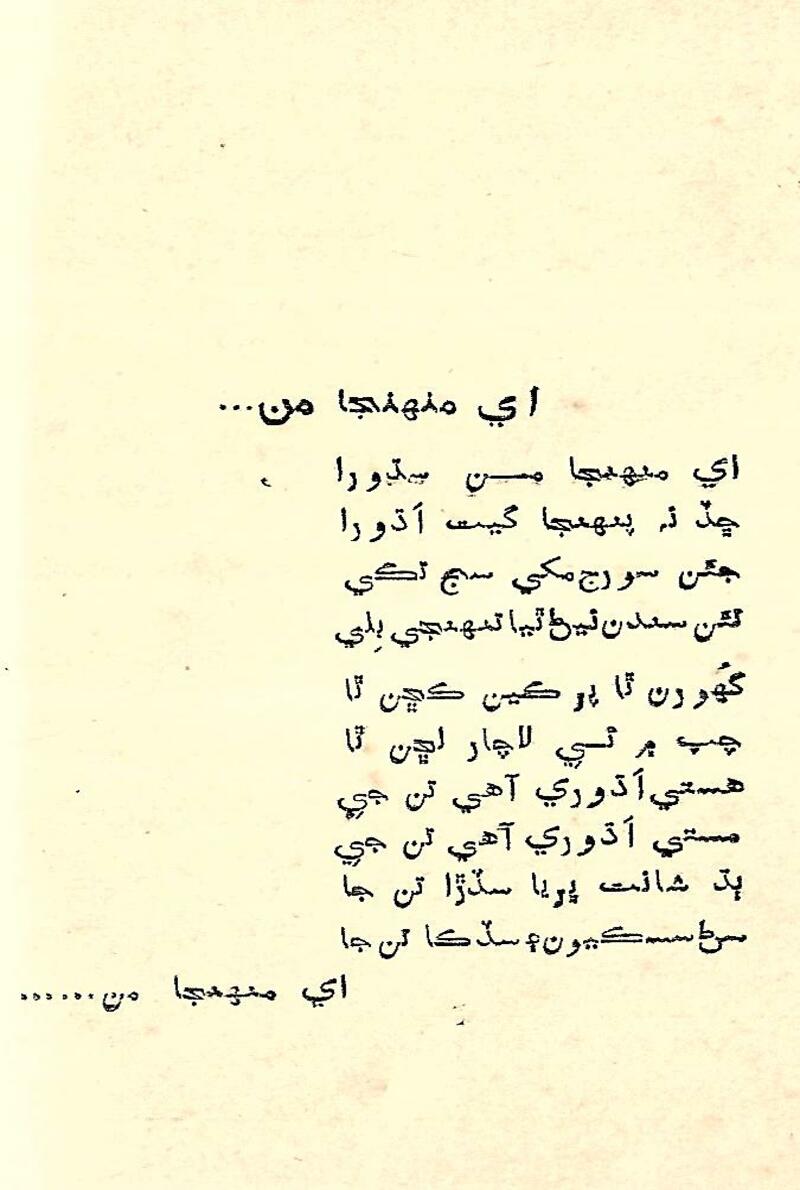 اي منهنجا من...
اي منهنجا مـــن سڌورا
ڇڏ نہ پنهنجا گيت اَڌورا
جئن سورج مکي سج تڪي
تئن سندن نيڻ ٿيا تنهنجي ٻلي
گھُورن ٿا پر ڪين ڪڇن ٿا
چپ ۾ ئـــي لاچار لڇن ٿا
هستي اَڌوري آهي تن جي
مستي اَڌوري آهي تن جي
ٻڌ شانت ڀريا سڏڙا تن جا
سڻ سسڪيون ۽ سڏڪا تن جا
اي منهنجا من......